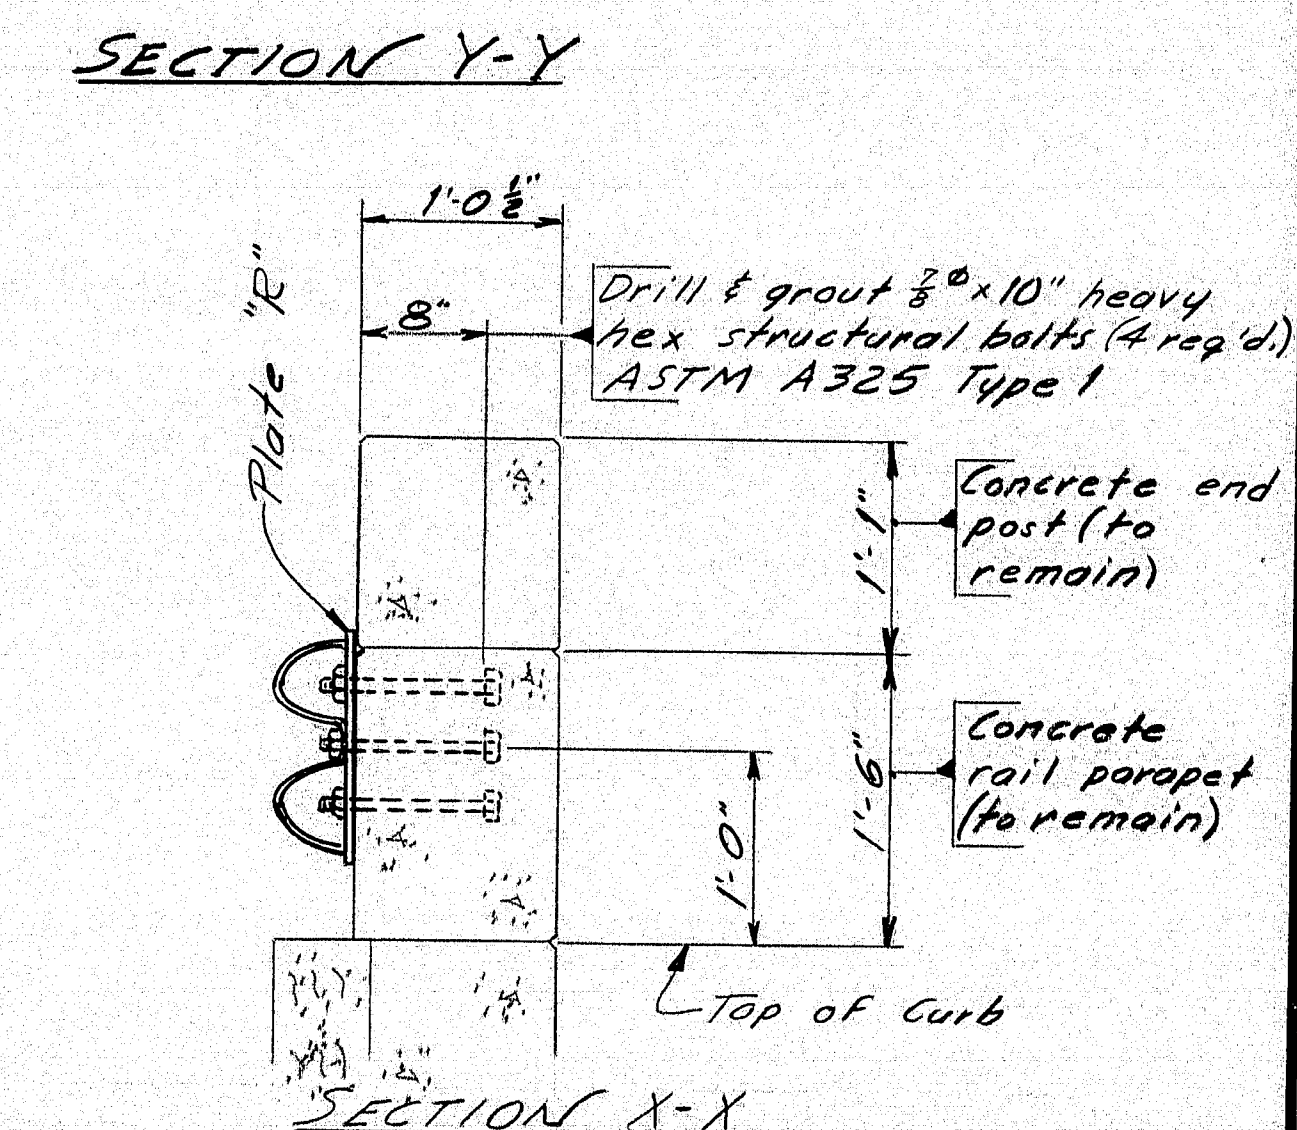 SECTION Y-Y
1'-0 1/2"
8"
Plate "R"
Drill & grout 7/8 ø x 10" heavy
hex structural bolts (4 req'd.)
ASTM A325 Type 1
1'-1"
Concrete end
post (to
remain)
1'-6"
Concrete
rail parapet
(to remain)
1'-0"
Top of Curb
SECTION X-X